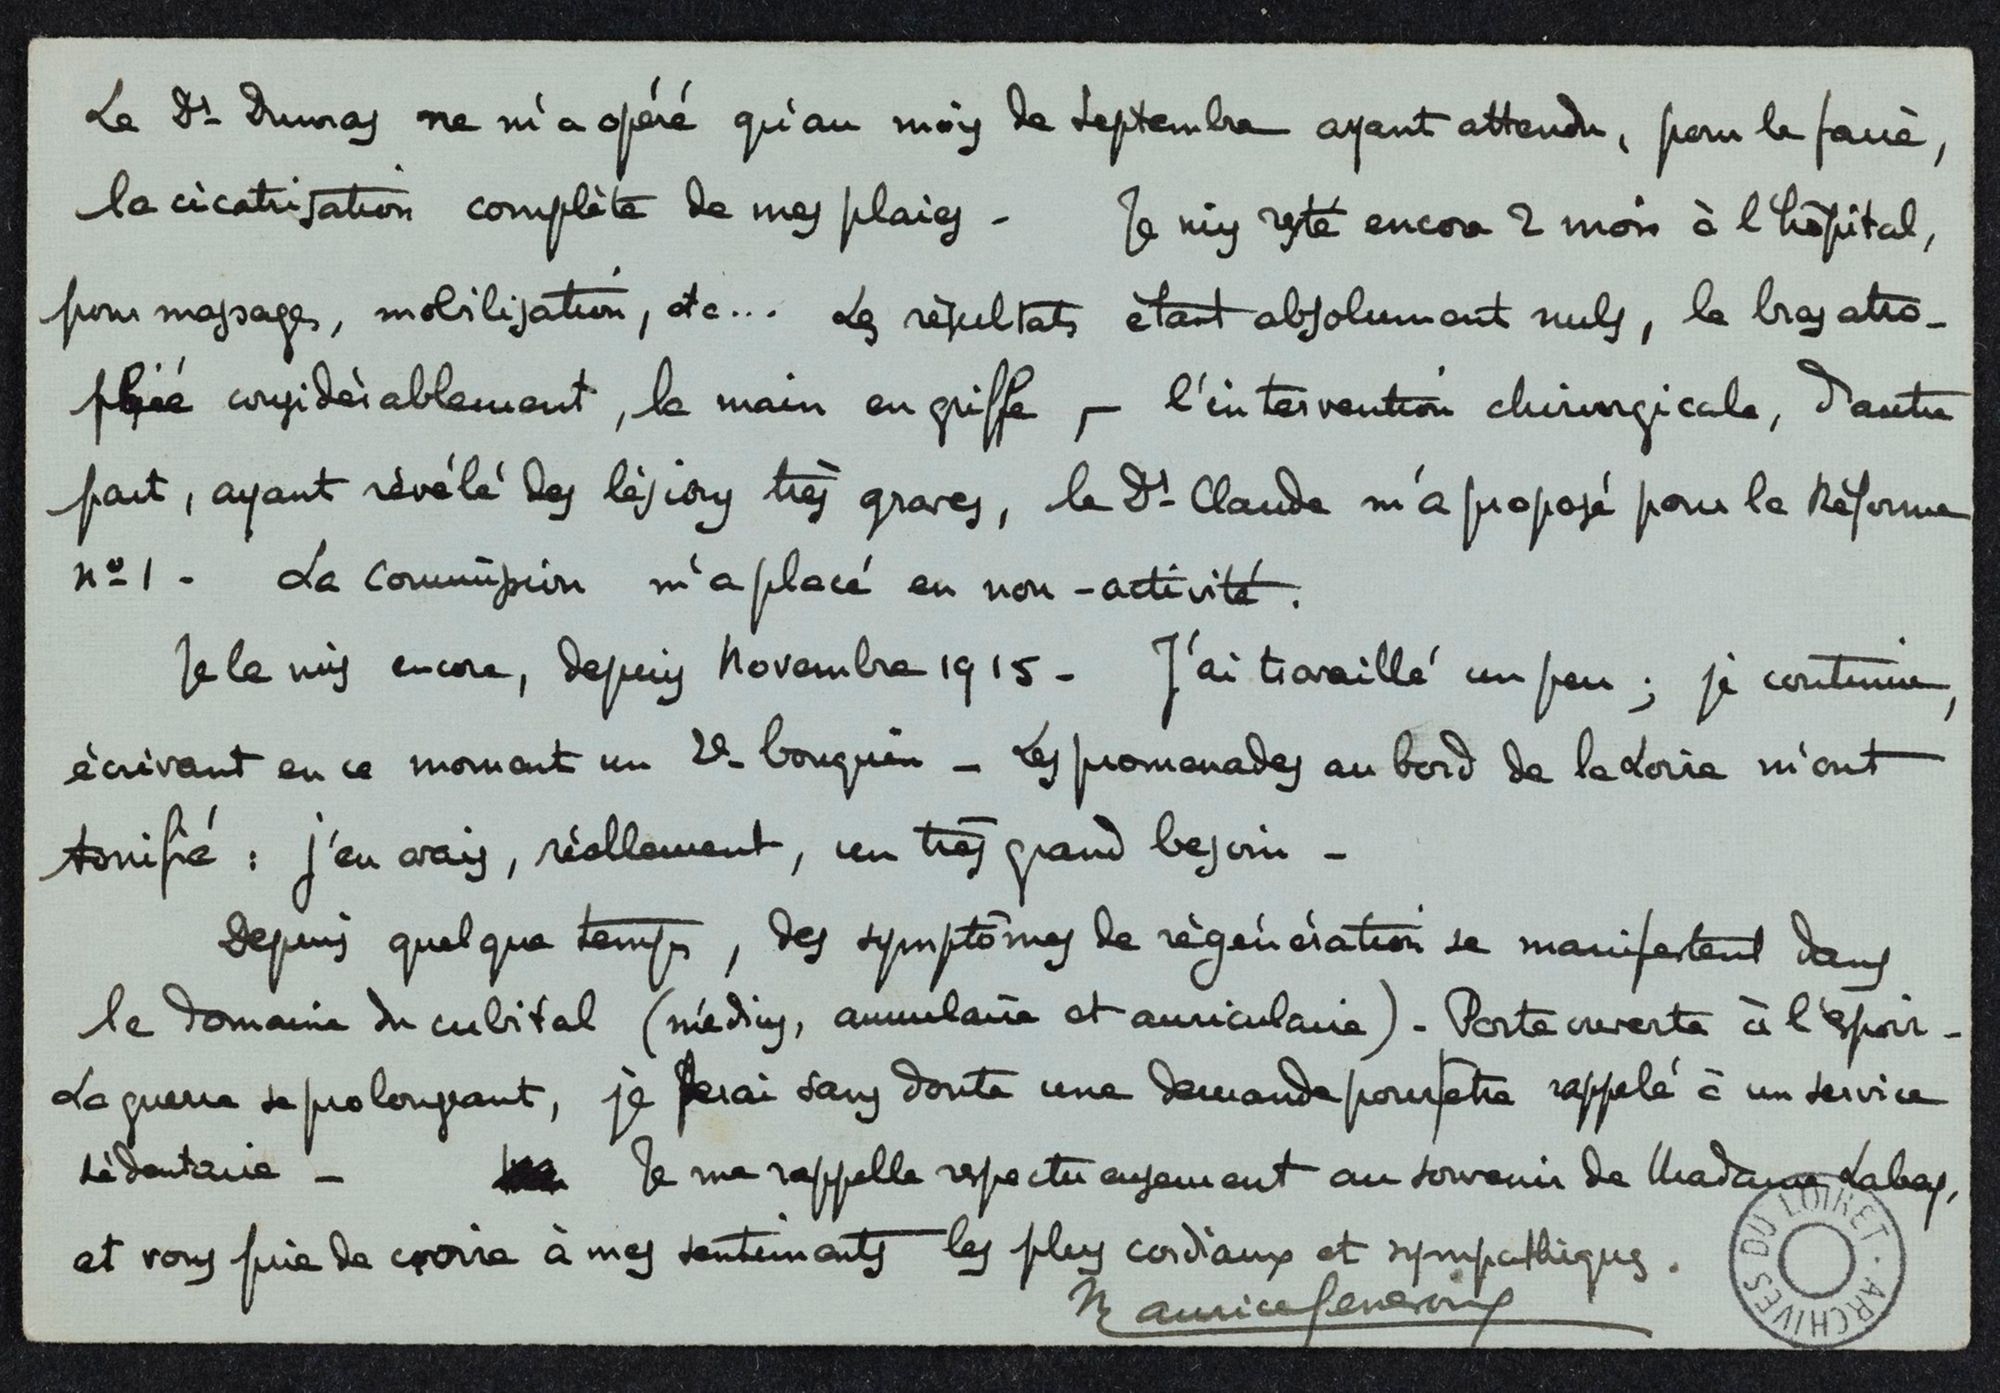 Le Dr Duvray ne m'a opéré qu'au mois de Septembre ayant attendu, pour le faire,
la cicatrisation complète de mes plaies - Je suis resté encore 2 mois à l'hôpital,
pour massages, mobilisation, etc... Les résultats étant absolument nuls, le bras atro-
phié considérablement, la main en griffe, - l'intervention chirurgicale, d'autre
part, ayant révélé des lésions très graves, le Dr Claude m'a proposé pour la Réforme
no 1 - La Commission m'a placé en non-activité.
Je le suis encore, depuis Novembre 1915 - J'ai travaillé un peu ; je continue,
écrivant en ce moment un 2e bouquin - Les promenades au bord de la Loire m'ont
tonifié : j'en avais, réellement, un très grand besoin -
Depuis quelque temps, des symptômes de régénération se manifestent dans
le domaine du cubital (médius, annulaire et auriculaire) - Porte ouverte à l'espoir -
La guerre se prolongeant, je ferai sans doute une demande pour être rappelé à un service
sédentaire - Je me rappelle respectueusement au souvenir de Madame
et vous prie de croire à mes sentiments les plus cordiaux et sympathiques.
Maurice Genevoix
ARCHIVES DU LOIRET